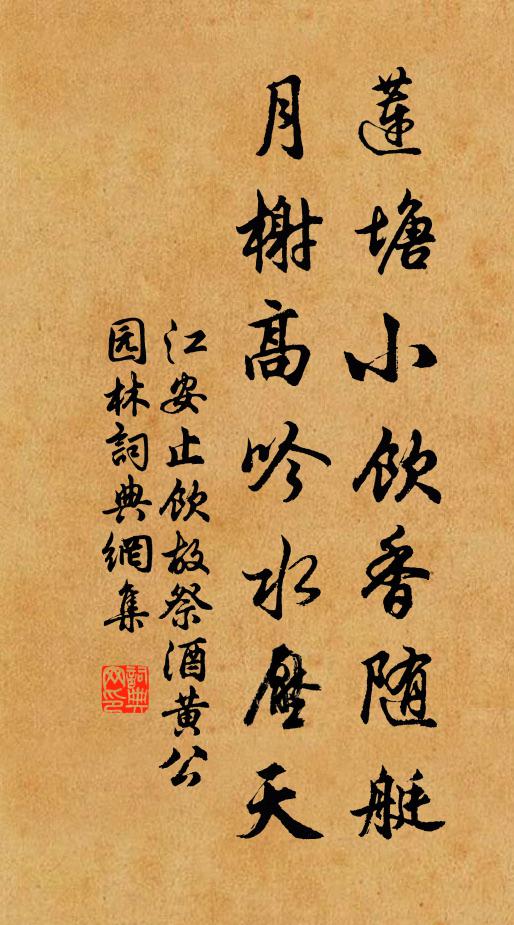 莲塘小飲香随艇
月榭高吟水壓天
江安止飲故祭酒黄公
园林詞典網集
詞典
网印